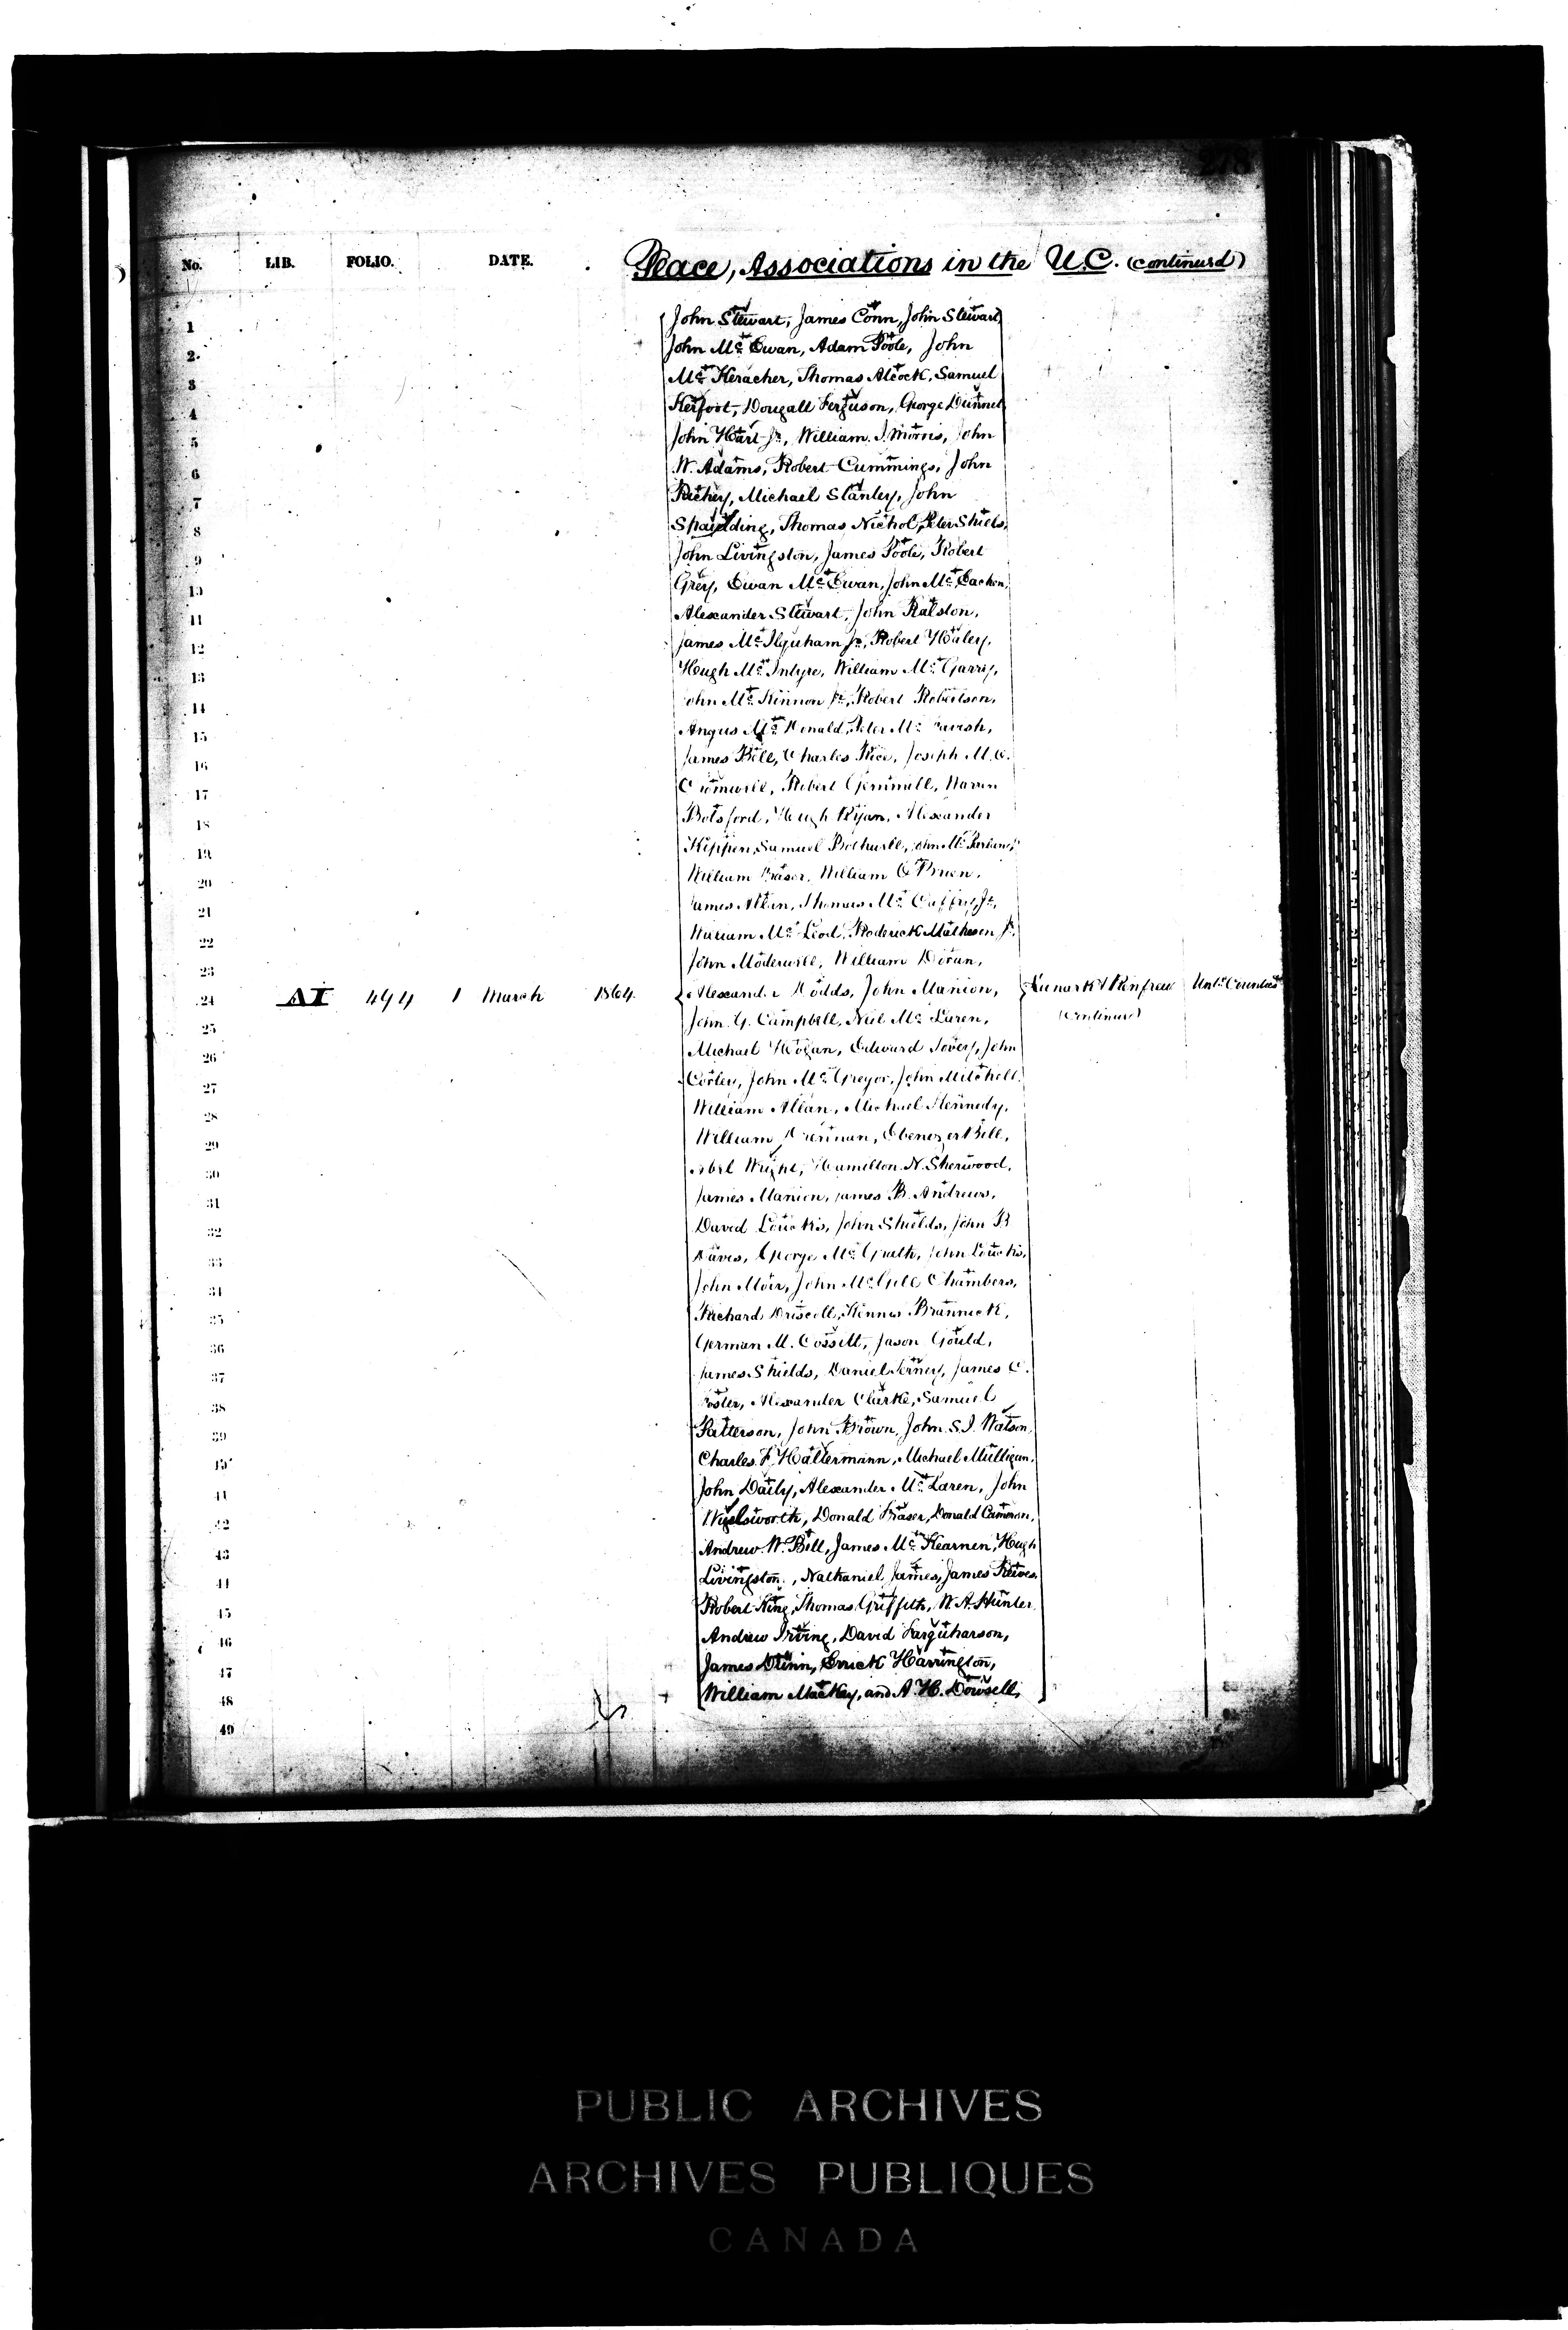 278
No. LIB. FOLIO. DATE. Peace, Associations in the U.C. (continued)
1 John Stewart, James Conn, John Stewart,
2 John Mc Ewan, Adam Poole, John
3 Mc Keracher, Thomas Alcock, Samuel
4 Kerfoot, Dougall Ferguson, George Dunnet
5 John Hart Jr, William J. Morris, John
6 W. Adams, Robert Cummings, John
7 Richey, Michael Stanley, John
8 Spaulding, Thomas Nichol, Peter Shiels,
9 John Livingston, James Poole, Robert
10 Grey, Ewan Mc Ewan, John Mc Eachen,
11 Alexander Stewart, John Ralston,
12 James Mc Ilquham Jr, Robert Haley,
13 Hugh Mc Intyre, William Mc Garry,
14 John Mc Kinnon Jr, Robert Robertson,
15 Angus Mc Donald, Peter Mc Tavish,
16 James Bell, Charles Rice, Joseph M. O.
17 Cromwell, Robert Gemmill,
18 Botsford, Hugh Ryan, Alexander
19 Kippen, Samuel Bothwell, John Mc
20 William Fraser, William O'Brien,
21 James Allan, Thomas Mc Caffry Jr,
22 William Mc Leod, Roderick Matheson Jr
23 John Moderwell, William Doran,
24 AI 494 1 March 1864. Alexander Dodds, John Manion, Lanark & Renfrew Untd Counties
25 John G. Campbell, Neil Mc Laren, (Continued)
26 Michael Hogan, Edward John
27 Corley, John Mc Gregor, John Mitchell,
28 William Allan, Michael Kennedy,
29 William Drennan, Ebenezer Bell,
30 Abel Wright, Hamilton N. Sherwood,
31 James Manion, James B. Andrews,
32 David Loucks, John Shields, John B
33 Davis, George Mc Grath, John Loucks,
34 John Moir, John Mc Gill Chambers,
35 Richard Driscoll, Brannick,
36 German M. Cossitt, Jason Gould,
37 James Shields, Daniel James C.
38 Foster, Alexander Clarke, Samuel
39 Patterson, John Brown, John S. J. Watson,
40 Charles F. Hattermann, Michael Mulligan,
41 John Daily, Alexander Mc Laren, John
42 Donald Fraser, Donald Cameron,
43 Andrew W. Bell, James Mc Kearnen, Hugh
44 Livingston, Nathaniel James, James Reeves,
45 Robert King, Thomas Griffith, W. A. Hunter
46 Andrew Irving, David Farquharson,
47 James Dunn, Errick Harrington,
48 William Mackay, and A. H. Dowsell,
49
PUBLIC ARCHIVES
ARCHIVES PUBLIQUES
CANADA